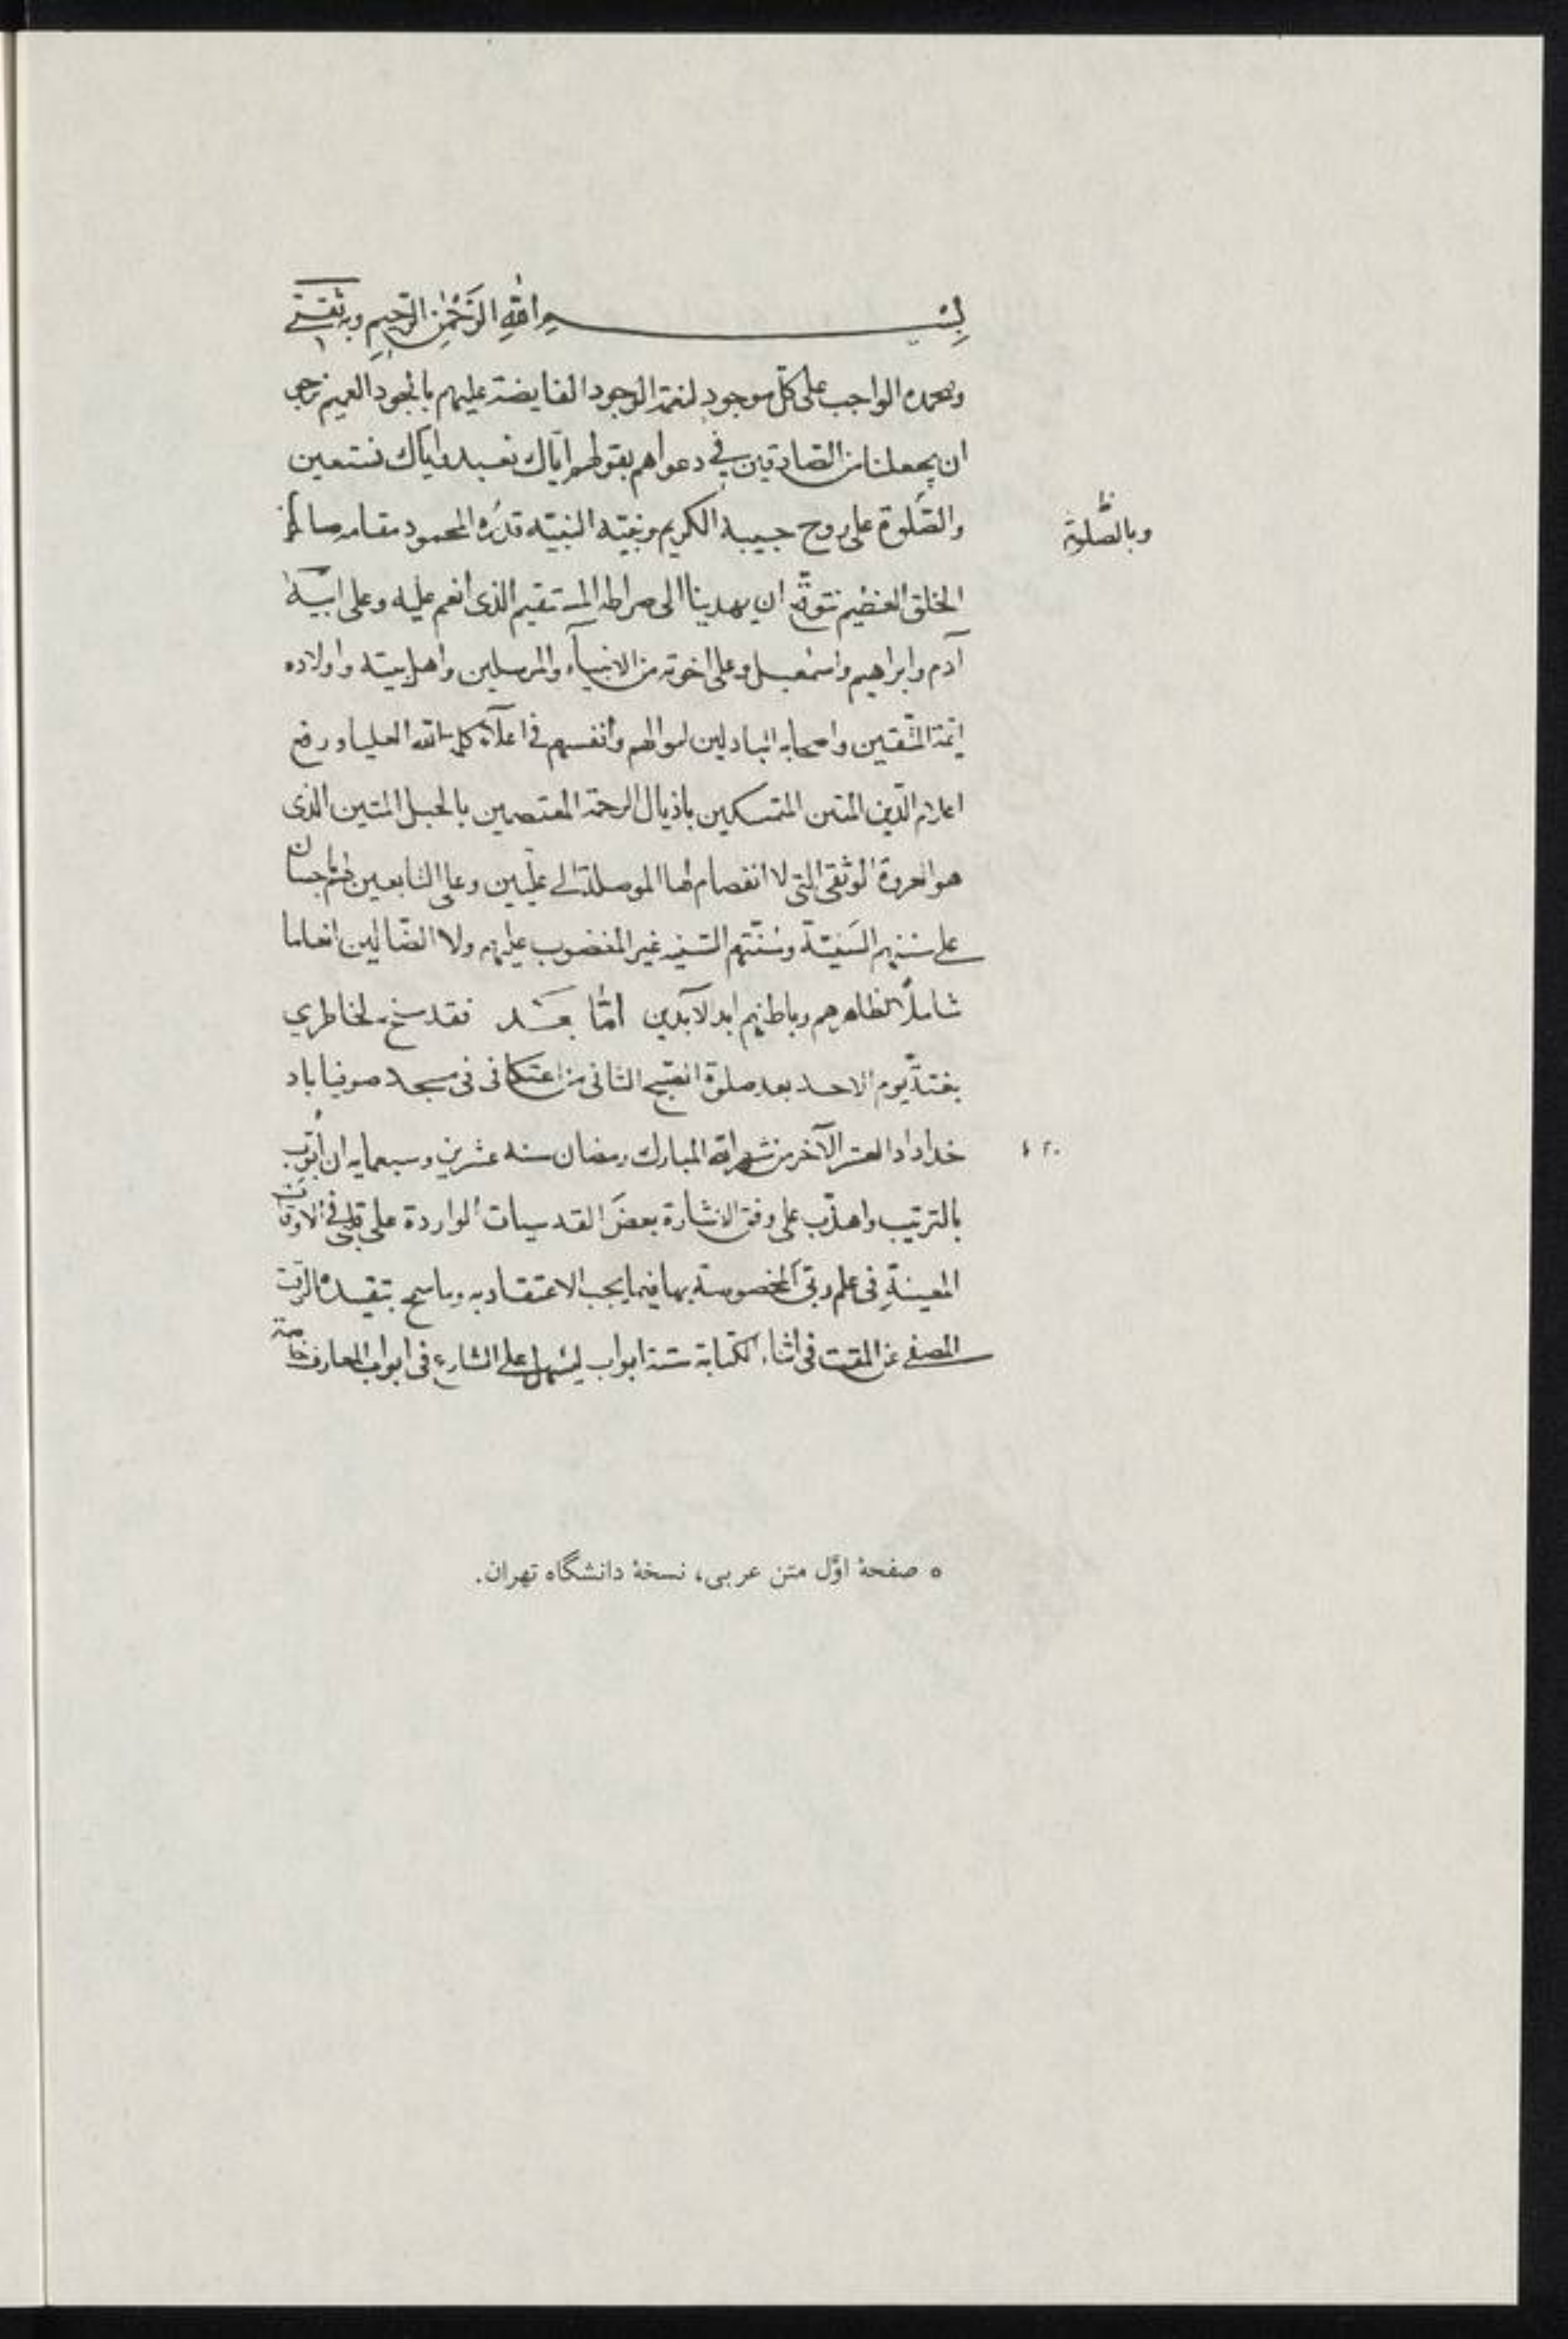 بسم الله الرحمن الرحيم وبه ثقتى
وبحمده الواجب على كل موجود لنعمة الوجود الفايضة عليهم بالجود العميم نرجى
ان يجعلنا من الصادقين في دعواهم بقولهم اياك نعبد واياك نستعين
والصلوة على روح حبيبه الكريم ونبيه النبيه قدره المحمود مقامه صاحب
وبالصلوة
الخلق العظيم نتوقع ان يهدينا الى صراطه المستقيم الذى انعم عليه وعلى ابيه
آدم وابراهيم واسمعيل وعلى اخوته من الانبياء والمرسلين واهل بيته واولاده
ائمة المتقين واصحابه الباذلين اموالهم وانفسهم في اعلاء كلمة الله العليا ورفع
اعلام الدين المتين المتمسكين باذيال الرحمة المعتصمين بالحبل المتين الذى
هو العروة الوثقى التى لا انفصام لها الموصلة الى عليين وعلى التابعين لهم باحسان
على سننهم السنية وسنتهم غير المغضوب عليهم ولا الضالين انعاما
شاملا لظاهرهم وباطنهم ابد الآبدين اما بعد فقد سنح لخاطري
بغتة يوم الاحد بعد صلوة الصبح الثانى من اعتكافى فى مسجد صوفياباد
خداداد العشر الآخر من شهر الله المبارك رمضان سنه عشرين وسبعمايه ان ابوب
بالترتيب واهذب على وفق الاشارة بعض القدسيات الواردة على قلبى فى الاوقات
المعينة فى علم ربى المخصوصة بها فيما يجب الاعتقاد به وما سنح بتقيده الوقت
المصفى عن المقت فى اثناء الكتابة ستة ابواب ليسهل على الشارع فى ابواب المعارف خاصة
ه صفحهٔ اوّل متن عربی، نسخهٔ دانشگاه تهران.